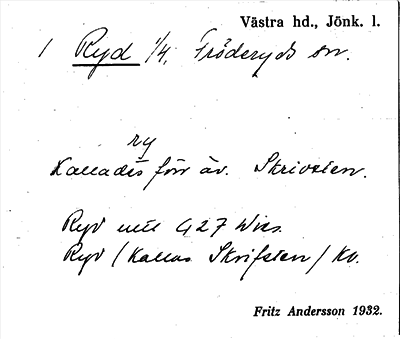 Västra hd., Jönk. l.
1 Ryd 1/4, Fröderyds sn.
ry
Kallades förr äv. Skrivsten.
Ryd mtl 427 Wis.
Ryd (Kallas Skrifsten) Kv.
Fritz Andersson 1932.